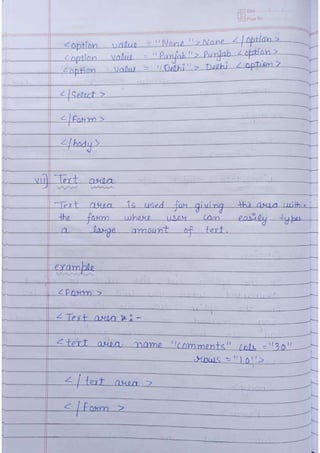 <option value = "None"> None </option>
<option value = "Punjab"> Punjab <option>
<option value = "Delhi"> Delhi <option>
</Select>
</Form>
</body>
vii) Text area
Text area is used for giving the area within
the form where user can easily types
a large amount of text.
example
<Form>
< Text area :-
<text area name "comments" cols = "30"
rows = "10">
</text area>
</Form>